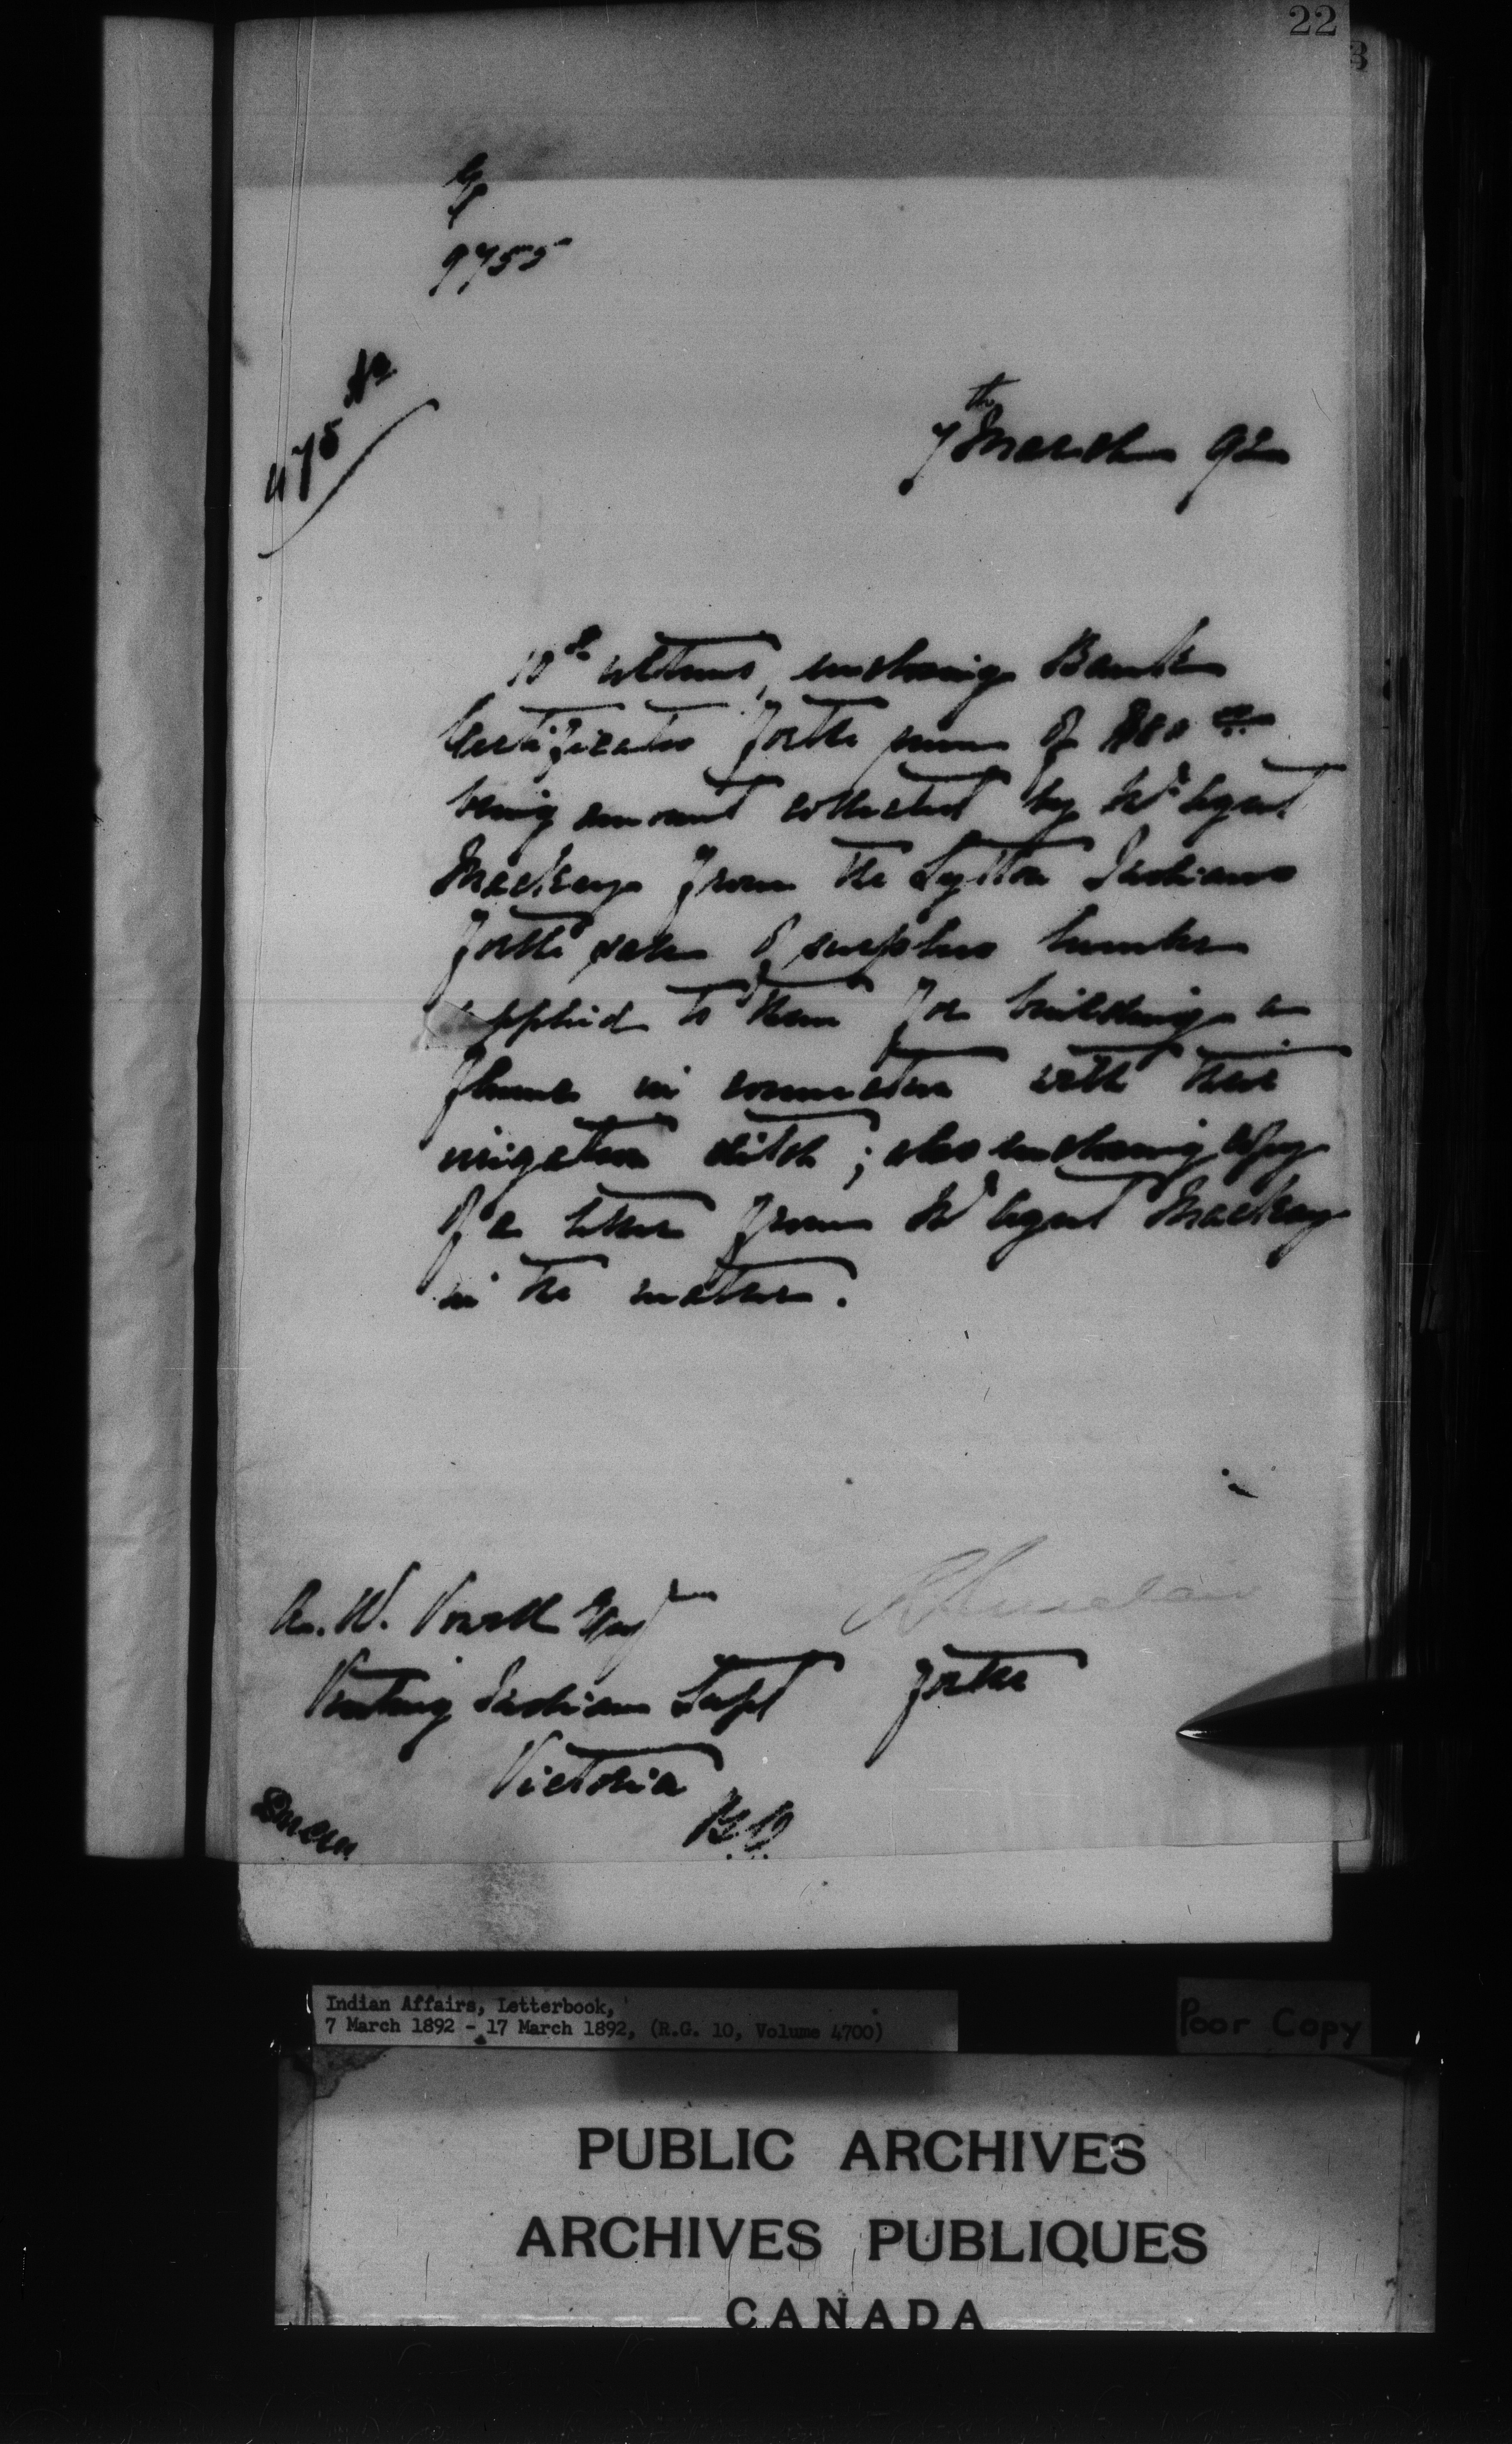 22
3
9755
7th March 92
10th ultimo, enclosing Bank
Certificate for the sum of $80
being amount collected by Agent
Mackay from the Lytton Indians
for the sale of surplus lumber
supplied to them for building a
flume in connection with their
irrigation ditch; also enclosing copy
of a letter from Agent Mackay
in the matter.
A. W. Vowell Esq
Visiting Indian Supt for the
Victoria
B.C.
Indian Affairs, Letterbook,
7 March 1892 - 17 March 1892, (R.G. 10, Volume 4700)
Poor Copy
PUBLIC ARCHIVES
ARCHIVES PUBLIQUES
CANADA